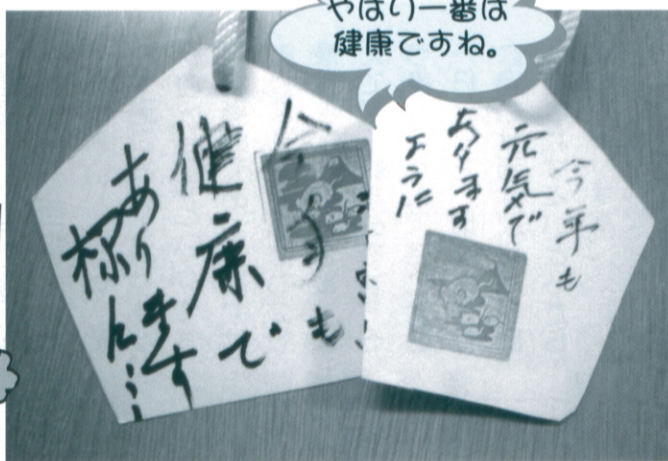 やはり一番は
健康ですね。
今年も
元気で
あります
ように
今
も
健康で
あります
様に…